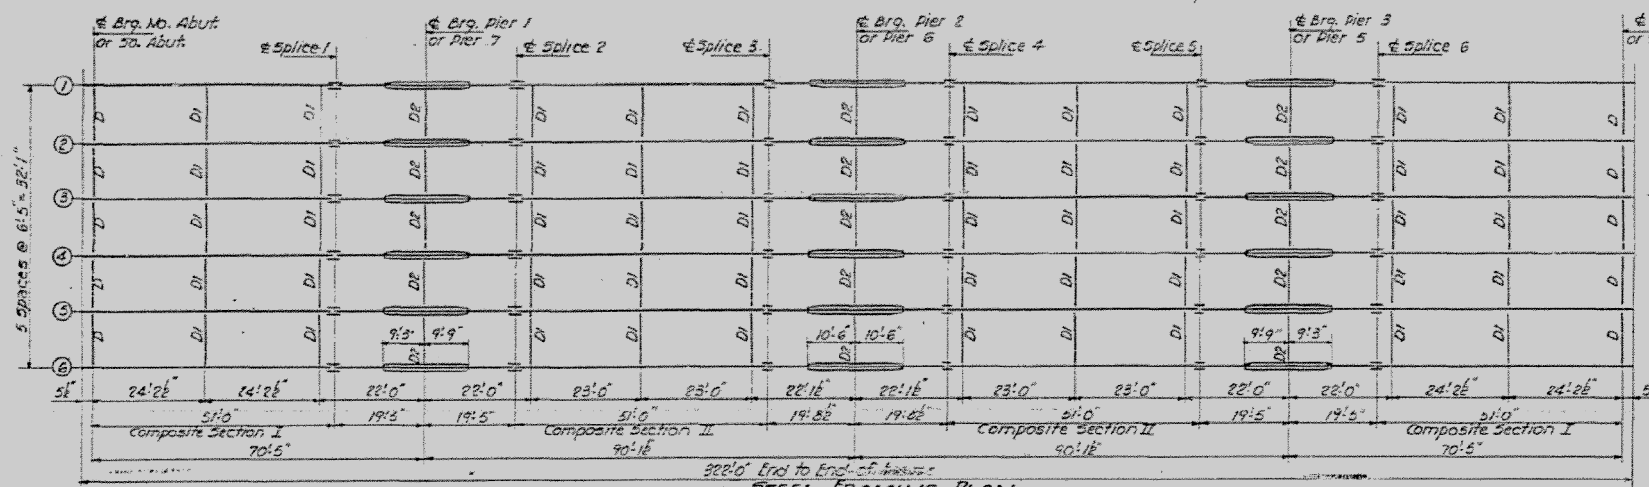 ℄ Brg. No. Abut.
or So. Abut.
℄ Splice 1
℄ Brg. Pier 1
or Pier 7
℄ Splice 2
℄ Splice 3
℄ Brg. Pier 2
or Pier 6
℄ Splice 4
℄ Splice 5
℄ Brg. Pier 3
or Pier 5
℄ Splice 6
℄
or
1
D D1 D1 D2 D1 D1 D1 D2 D1 D1 D1 D2 D1 D1 D
2
D D1 D1 D2 D1 D1 D1 D2 D1 D1 D1 D2 D1 D1 D
3
D D1 D1 D2 D1 D1 D1 D2 D1 D1 D1 D2 D1 D1 D
4
D D1 D1 D2 D1 D1 D1 D2 D1 D1 D1 D2 D1 D1 D
5
D D1 D1 D2 D1 D1 D1 D2 D1 D1 D1 D2 D1 D1 D
6
5 Spaces @ 6'-5" = 32'-1"
9'-3" 9'-9" 10'-6" 10'-6" 9'-9" 9'-3"
5½" 24'-2½" 24'-2½" 22'-0" 22'-0" 23'-0" 23'-0" 22'-1½" 22'-1½" 23'-0" 23'-0" 22'-0" 22'-0" 24'-2½" 24'-2½"
51'-0" 19'-5" 19'-5" 51'-0" 19'-8½" 19'-8½" 51'-0" 19'-5" 19'-5" 51'-0"
Composite Section I Composite Section II Composite Section II Composite Section I
70'-5" 90'-1½" 90'-1½" 70'-5"
322'-0" End to End of beams
STEEL FRAMING PLAN